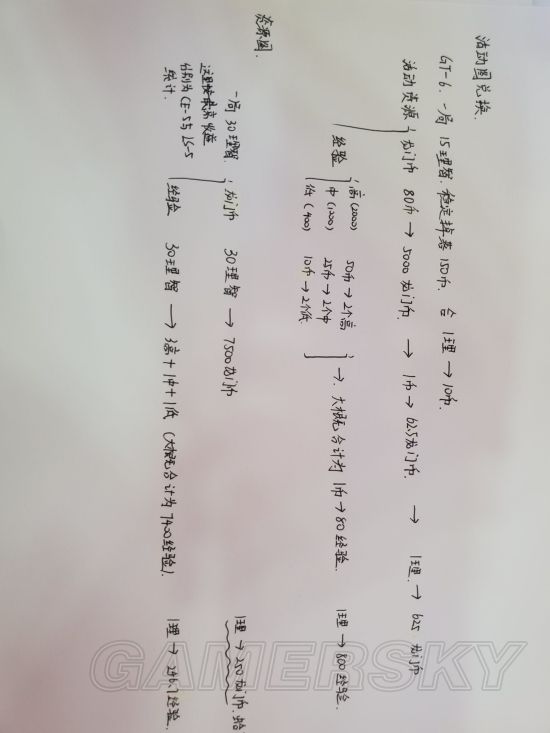 活动图兑换.
GT-6. 一局 15理智. 稳定掉落 150币. 合 1理 → 10币.
活动资源 { 龙门币 80币 → 5000龙门币. → 1币 → 62.5龙门币. → 1理. → 625 龙门币
经验 { 高(2000) 50币 → 2个高
中(1000) 25币 → 2个中
低(400) 10币 → 2个低
} → 大概合计为 1币 → 80经验. 1理 → 800经验.
资源图.
一局 30理智. { 龙门币 30理智 → 7500龙门币 1理 → 250龙门币.
经验 30理智 → 3高 + 1中 + 1低 (大概合计为7400经验). 1理 → 246.7经验.
分别为CE-5与LS-5
统计.
GAMERSKY